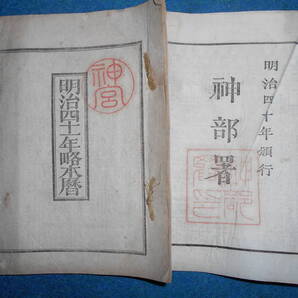 明治四十年頒行
神部署
神宮
明治四十一年略本暦